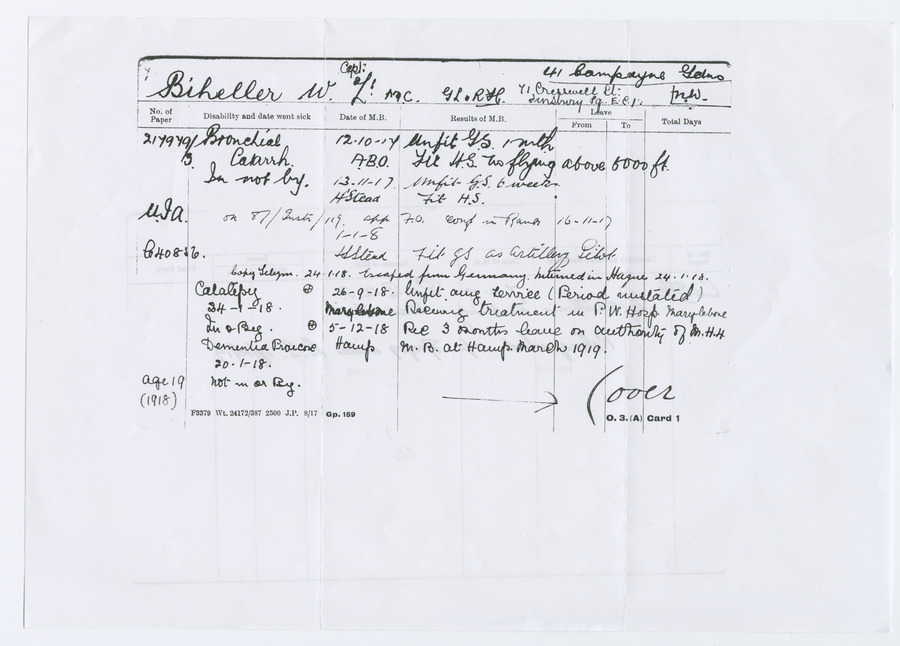 Capt:
Biheller W. Lt M.C. GL. & R.F.C.
41 Compayne Gdns
N.W.
71 Cresswell
Finsbury Sq. E.C.1.
No. of Paper Disability and date went sick Date of M.B. Results of M.B. Leave From To Total Days
217979/ Bronchial 12-10-17 Unfit G.S. 1 mth
3. Catarrh. A.B.O. Fit H.S no flying above 5000 ft.
In not by. 13-11-17. Unfit G.S. 6 weeks
H'Stead Fit H.S.
M.I.A. on 87/Instr/119. app F.O. 16-11-17
1-1-8
C40856. H'Stead Fit GS as Artillery Pilot
Copy Telegm. 24.1.18. Escaped from Germany. Interned in Hague 24.1.18.
Catalepsy ⊕ 26-9-18. Unfit any Service (Period unstated)
24-1-18. Marylebone Receiving treatment in P.W. Hosp. Marylebone
In & By. ⊕ 5-12-18 Rec 3 months leave on authority of M.H.4
Dementia Praecox Hamp. M.B. at Hamp. March 1919.
20-1-18.
age 19 not in or By.
(1918)
(over
F3379 Wt. 24172/387 2500 J.P. 8/17 Gp. 159
O. 3.(A) Card 1